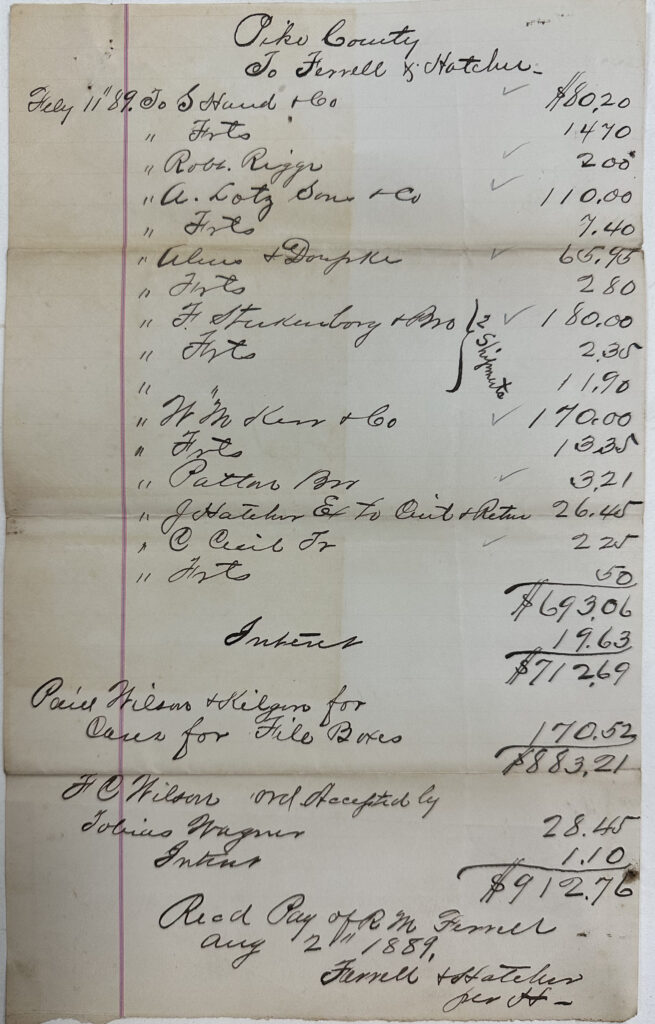 Pike County
To Ferrell & Hatcher
Feby 11" 89. To S Hand & Co $80.20
" Frts 14 70
" Robt. Riggs 2.00
" A. Lotz Sons & Co 110.00
" Frts 7.40
" Alms & Doepke 65.95
" Frts 2 80
" F. Stukenborg & Bro 2 Shipments 180.00
" Frts 2.35
" " 11.90
" W M Kerr & Co 170.00
" Frts 13.35
" Patton Bro 3.21
" J Hatcher Ex to Cint & Retur 26.45
" C Cecil Jr 2 25
" Frts 50
$693.06
Interest 19.63
$712.69
Paid Wilson & Kilgore for
Cases for File Boxes 170.52
$883.21
F C Wilson ord Accepted by
Tobias Wagner 28.45
Interest 1.10
$912.76
Recd Pay of R M Ferrell
Aug 2" 1889.
Ferrell & Hatcher
per H